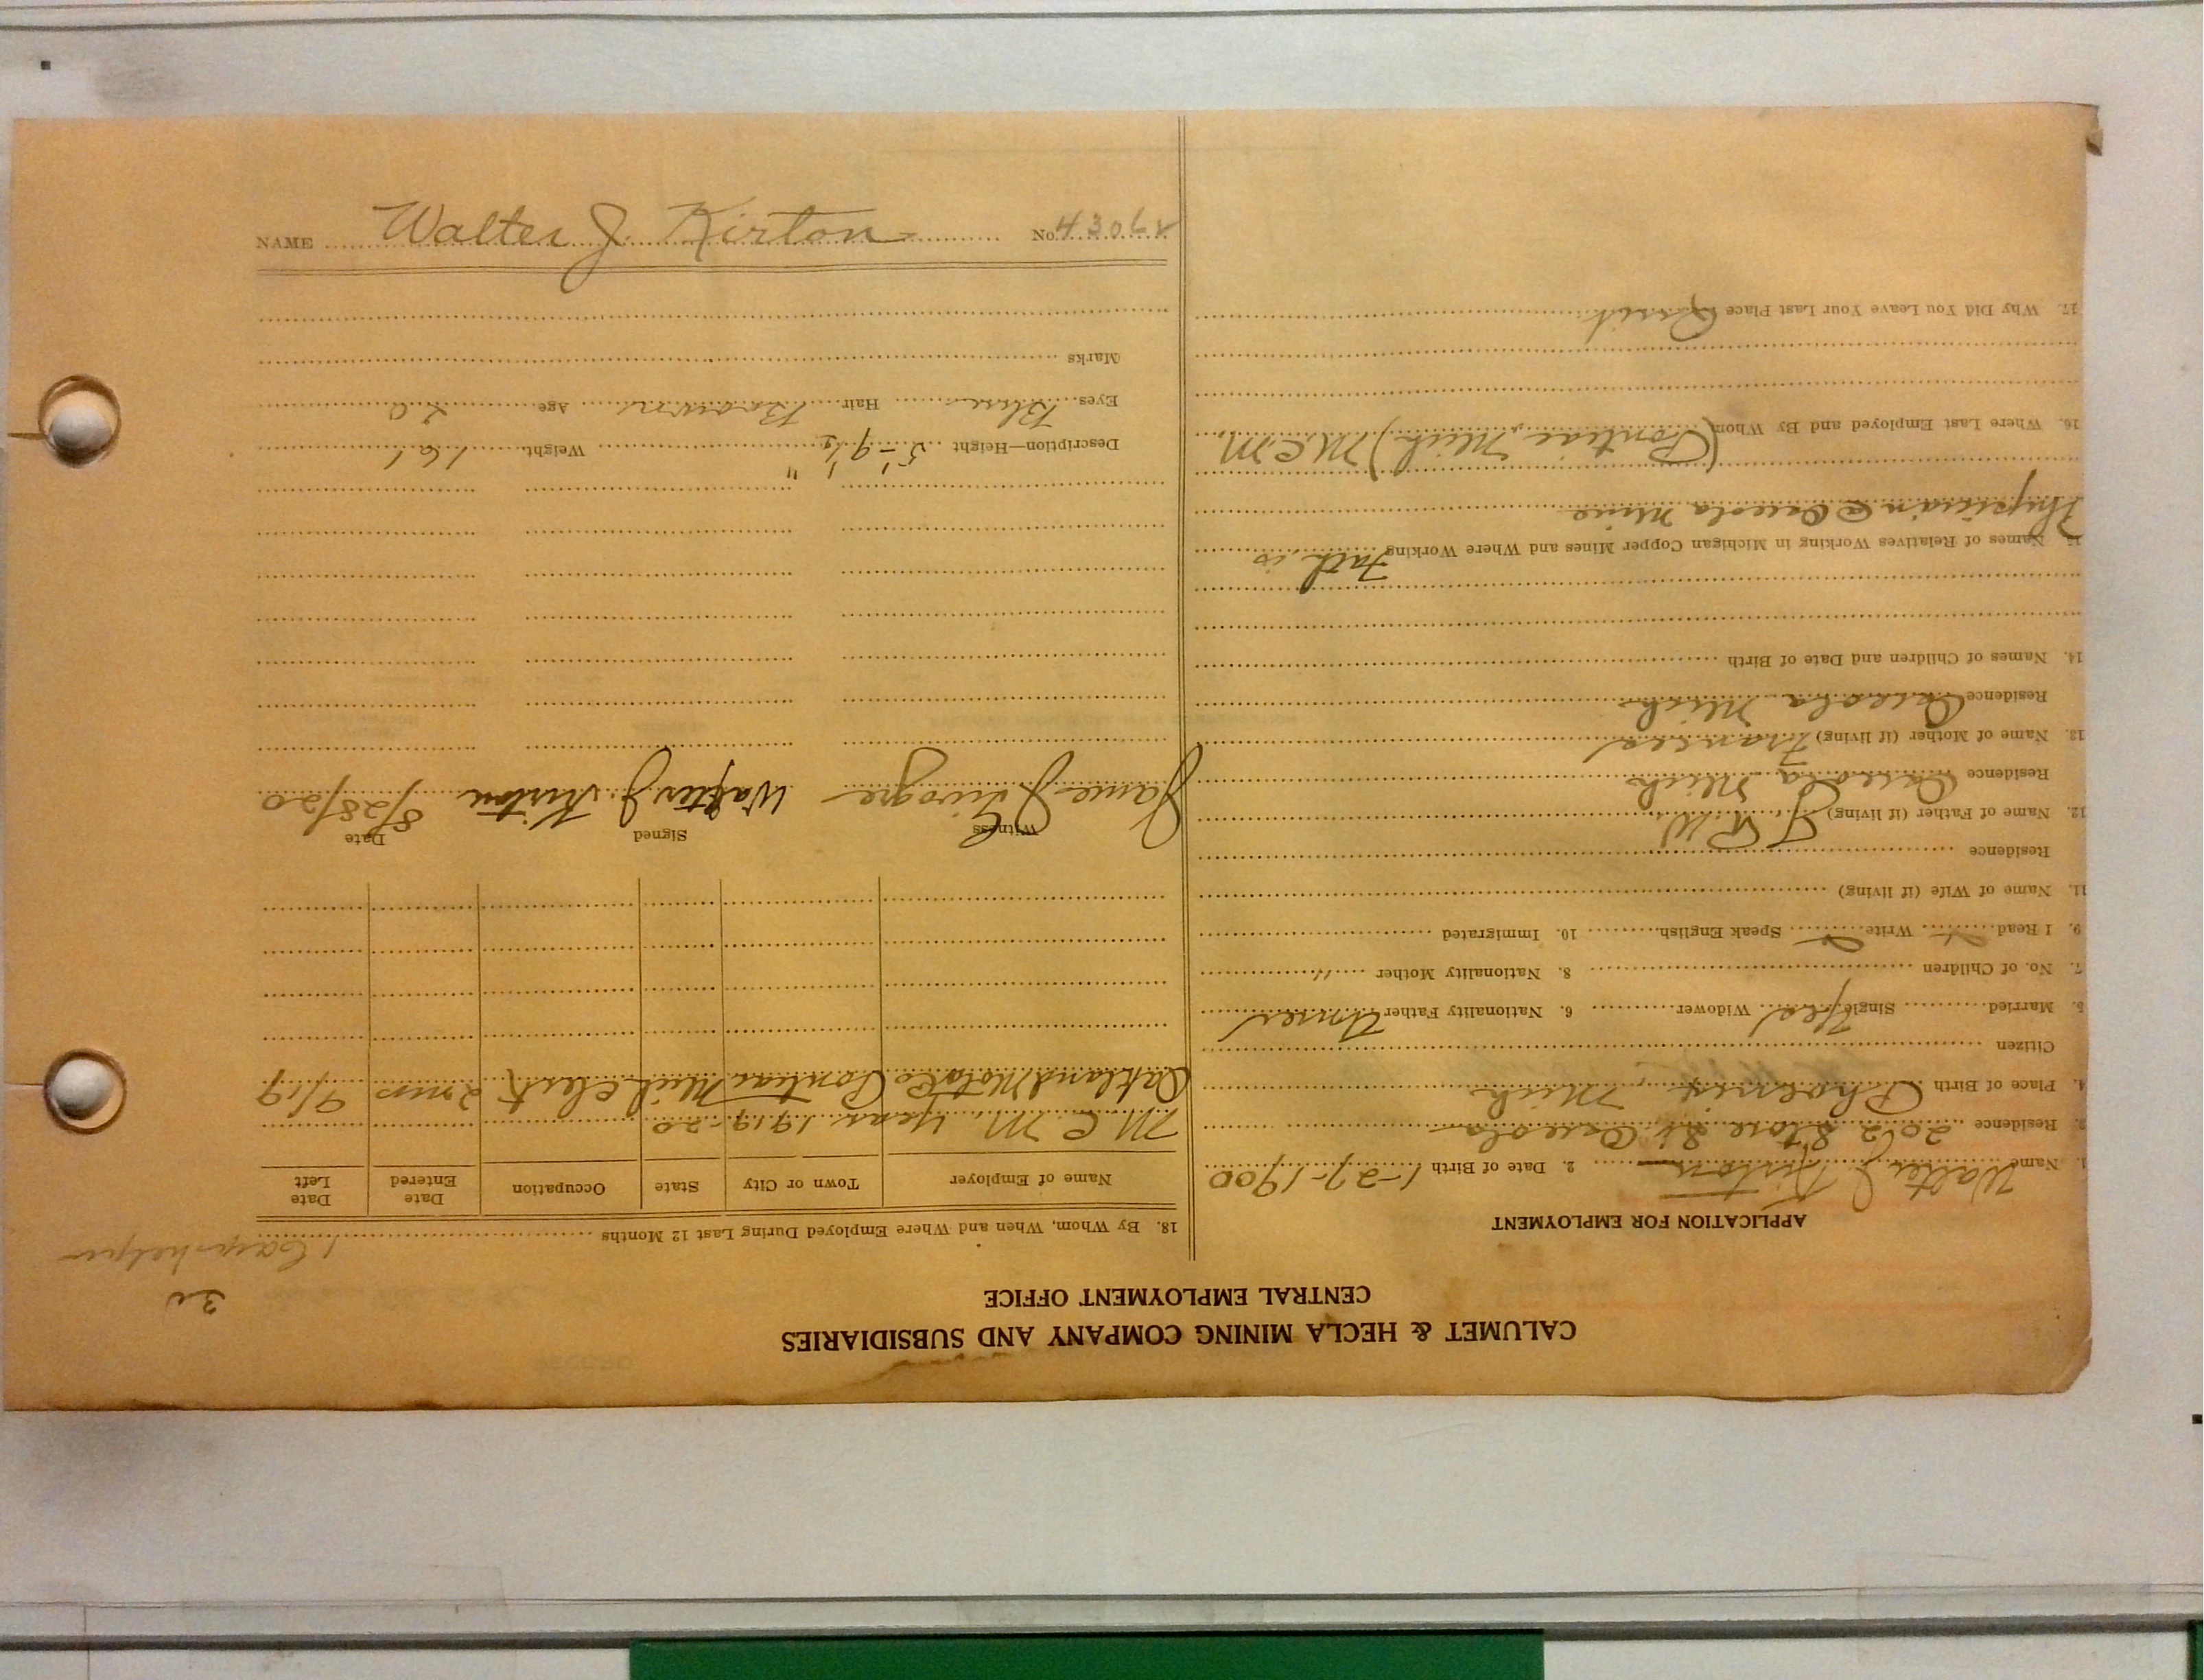 CALUMET & HECLA MINING COMPANY AND SUBSIDIARIES
CENTRAL EMPLOYMENT OFFICE
APPLICATION FOR EMPLOYMENT
1. Name Walter J Kirton 2. Date of Birth 1-27-1900
3. Residence 2062 Stone St Osceola
4. Place of Birth Phoenix, Mich
Citizen
5. Married Single Yes Widower 6. Nationality Father Amer
7. No. of Children 8. Nationality Mother "
9. I Read Write Speak English 10. Immigrated
11. Name of Wife (if living)
Residence
12. Name of Father (if living)
Residence Osceola Mich
13. Name of Mother (if living) Frances
Residence Osceola Mich
14. Names of Children and Date of Birth
15. Names of Relatives Working in Michigan Copper Mines and Where Working Fath is
Physician @ Osceola Mine
16. Where Last Employed and By Whom (Pontiac, Mich) M.C.M.
17. Why Did You Leave Your Last Place Quit
30
18. By Whom, When and Where Employed During Last 12 Months
Name of Employer Town or City State Occupation Date Entered Date Left
M.C.M. year 1919-20
Oakland Moto Co Pontiac Mich Clerk 2 mos 9/19
Witness Signed Date
James J Walter J. Kirton 8/28/20
Description—Height 5'-9 1/2" Weight 161
Eyes Blue Hair Brown Age 20
Marks
NAME Walter J. Kirton No. 43062